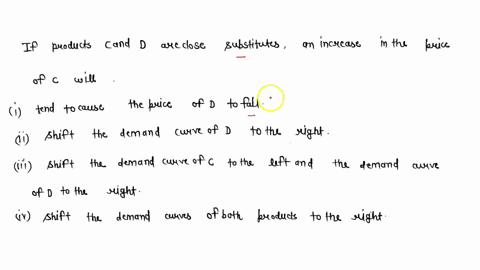 If products C and D are close substitutes, an increase in the price
of C will.
(i) tend to cause the price of D to fall.
(ii) shift the demand curve of D to the right.
(iii) shift the demand curve of C to the left and the demand curve
of D to the right.
(iv) shift the demand curves of both products to the right.